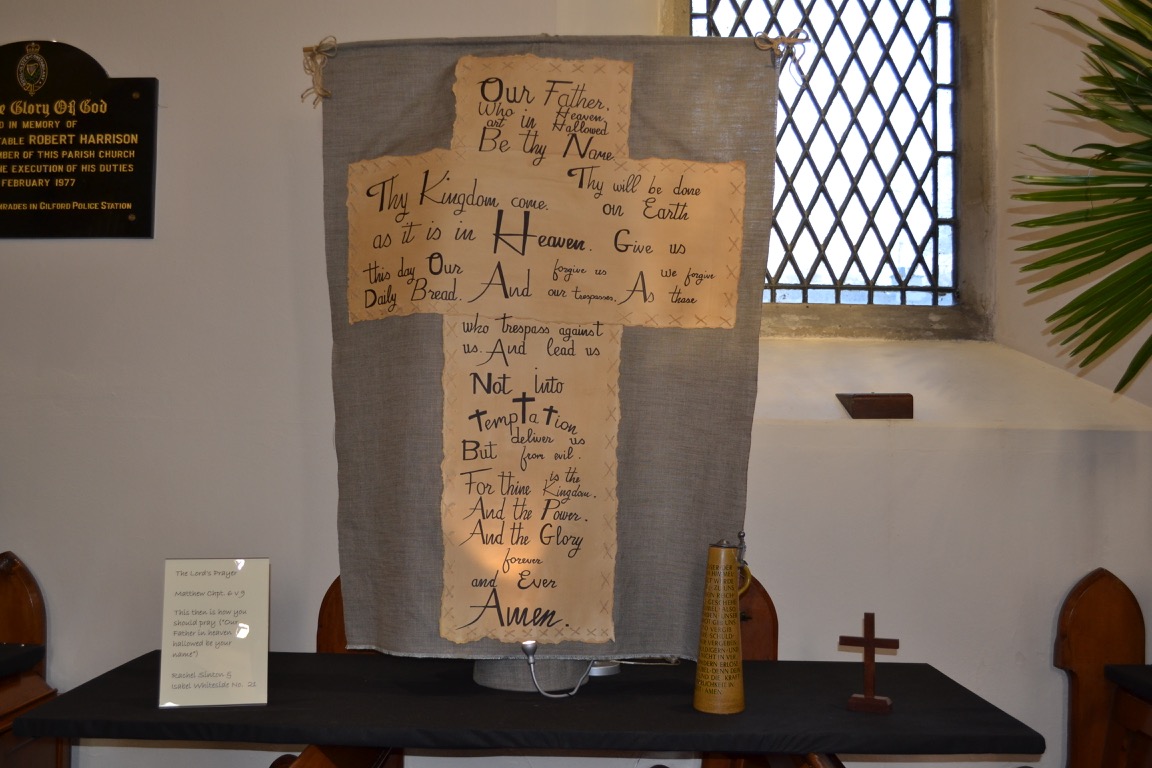 e Glory Of God
D IN MEMORY OF
TABLE ROBERT HARRISON
MBER OF THIS PARISH CHURCH
HE EXECUTION OF HIS DUTIES
FEBRUARY 1977
MRADES IN GILFORD POLICE STATION
Our Father,
Who art in Heaven,
Hallowed
Be thy Name
Thy Kingdom come. Thy will be done
on Earth
as it is in Heaven. Give us
this day Our
Daily Bread. And forgive us
our trespasses, As we forgive
those
who trespass against
us. And lead us
Not into
Temptation
But deliver us
from evil.
For thine is the
Kingdom.
And the Power.
And the Glory
forever
and Ever
Amen.
The Lord's Prayer
Matthew Chpt. 6 v 9
This then is how you
should pray ("Our
Father in heaven
hallowed be your
name")
Rachel Slinton &
Isabel Whiteside No. 21
AMEN